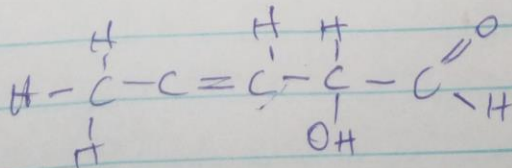 H H H O
H - C - C = C - C - C
H OH H